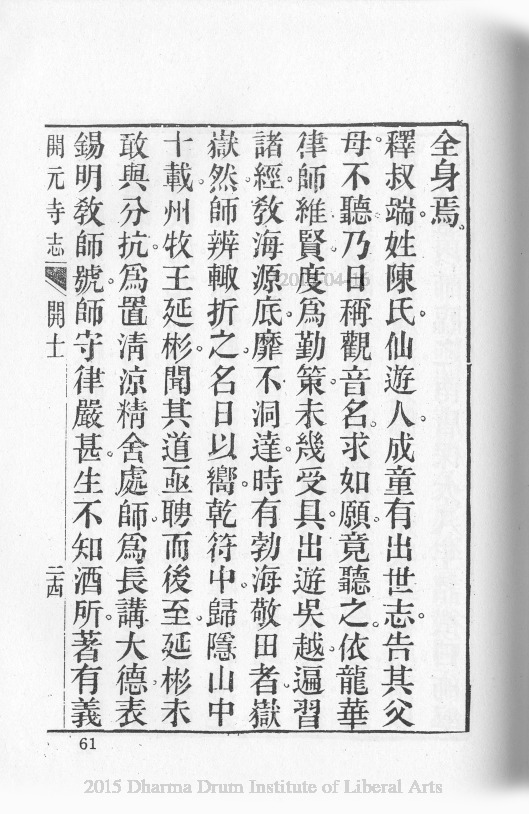 全身焉。
釋叔端。姓陳氏。仙遊人。成童有出世志。告其父
母。不聽。乃日稱觀音名。求如願。竟聽之。依龍華
律師維賢。度爲勤策。未幾受具。出遊吳越。遍習
諸經。教海源底。靡不洞達。時有勃海敬田者。嶽
嶽然。師辨輙折之。名日以嚮。乾符中。歸隱山中
十載。州牧王延彬。聞其道。亟聘而後至。延彬未
敢與分抗。爲置清涼精舍處師。爲長講大德。表
錫明教師號。師守律嚴甚。生不知酒。所著有義
開元寺志 開士 二十四
61
2015 Dharma Drum Institute of Liberal Arts